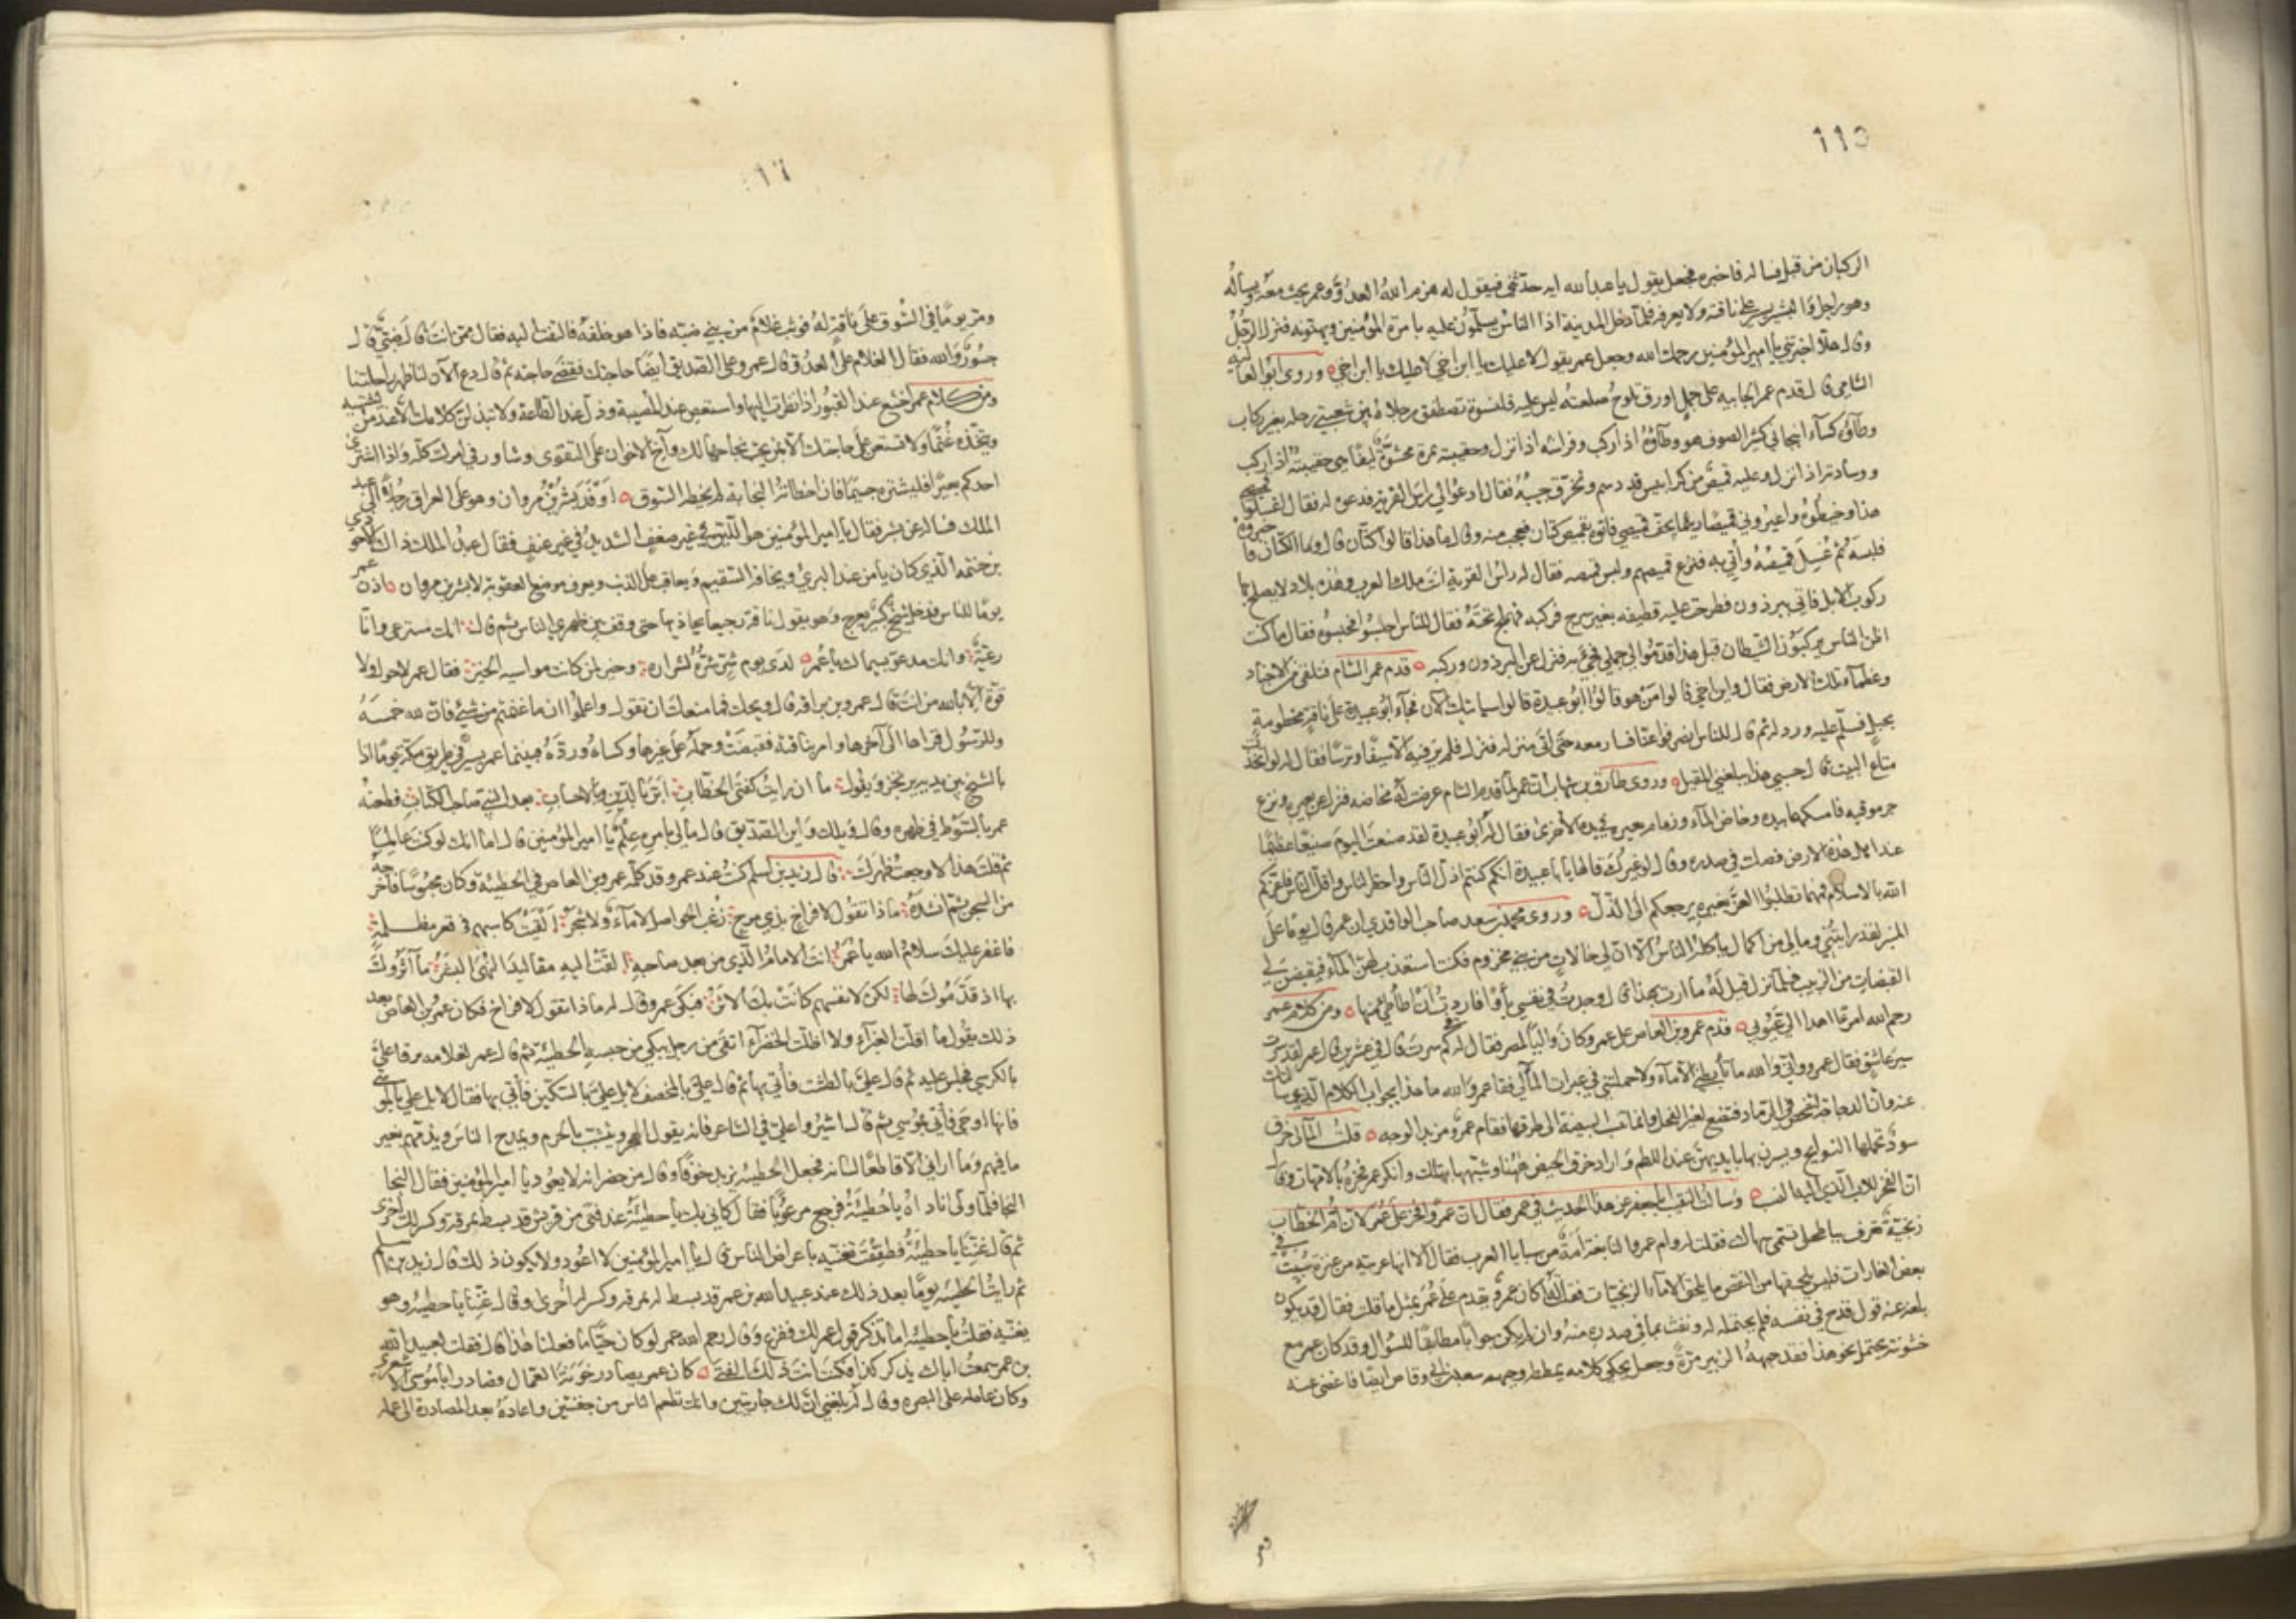 ١١٥
الركبان من قبل فساله فاخبره فجعل يقول يا عبد الله ايه حدثني فيقول له هزم الله العدو وعمر يحث معه ويسأله
وهو راجل والبشير يسير على ناقته ولا يعرفه فلما دخل المدينة اذا الناس يسلمون عليه بامرة المؤمنين ويهنونه فنزل الرجل
وقال هلا اخبرتني يا امير المؤمنين رحمك الله وجعل عمر يقول لا عليك يا ابن اخي لا عليك يا ابن اخي وروى ابو العالية
الشامي قال قدم عمر الجابيه على جمل اورق تلوح صلعته ليس عليه قلنسوة تصطفق رجلاه بين شعبتي رحله بغير ركاب
وطاؤه كساء انبجاني كثير الصوف هو وطاؤه اذا ركب وفراشه اذا نزل وحقيبته نمرة محشوة ليفا هي حقيبته اذا ركب
ووسادته اذا نزل وعليه قميص من كرابيس قد دسم وتخرق جيبه فقال ادعوا لي راس القرية فدعوه له فقال اغسلوا قميصي
هذا وخيطوه واعيروني قميصا ريثما يجف قميصي فاتوه بقميص كتان فعجب منه وقال ما هذا قالوا كتان قال وما الكتان فاخبروه
فلبسه ثم غسل قميصه وأتي به فنزع قميصهم ولبس قميصه فقال له راس القرية انت ملك العرب وهذه بلاد لا يصلح بها
ركوب الابل فاتي ببرذون فطرحت عليه قطيفه بغير سرج فركبه فهملج تحته فقال للناس احبسوا فحبسوه فقال ما كنت
اظن الناس يركبون الشيطان قبل هذا قدموا لي جملي فجيء به فنزل عن البرذون وركبه قدم عمر الشام فتلقى من الاجناد
وعظماء تلك الارض فقال واين اخي قالوا من هو قالوا ابو عبيدة قالوا سياتيك الآن فجاء ابو عبيدة على ناقة مخطومة
بحبل فسلم عليه ورد له ثم قال للناس انصرفوا عنا فسار معه حتى اتى منزله فنزل فلم ير فيه الا سيفا وترسا فقال له لو اتخذت
متاع البيت قال حسبي هذا يبلغني المقيل وروى طارق بن شهاب ان عمر لما قدم الشام عرضت له مخاضه فنزل عن بعيره ونزع
جرموقيه فامسكهما بيده وخاض الماء وزمام بعيره بيده الاخرى فقال له ابو عبيدة لقد صنعت اليوم صنيعا عظيما
عند اهل هذه الارض فصك في صدره وقال لو غيرك قالها يا با عبيدة انكم كنتم اذل الناس واحقر الناس واقل الناس فاعزكم
الله بالاسلام فمهما تطلبوا العز بغيره يرجعكم الى الذل وروى محمد بن سعد صاحب الواقدي ان عمر قال يوما على
المنبر لقد رايتني ومالي من اكال ياكله الناس الا ان لي خالات من بني مخزوم فكنت استعذب لهن الماء فيقبضن لي
القبضات من الزبيب فلما نزل قيل له ما اردت بهذا قال وجدت في نفسي بأوا فاردت ان اطأطئ منها ومن كلام عمر
رحم الله امرءا اهدا الي عيوبي قدم عمرو بن العاص على عمر وكان واليا لمصر فقال له في كم سرت قال في عشرين قال عمر لقد سرت
سير عاشق فقال عمرو واني والله ما تأبطتني الاماء ولا حملتني في غبرات المآلي فقال عمر والله ما هذا بجواب الكلام الذي سالتك
عنه وان الدجاجة لتفحص في الرماد فتضع لغير الفحل وانما تنسب البيضة الى طرقها فقام عمرو مزبد الوجه قلت المآلي خرق
سود تحملها النوايح ويسرن بها بايديهن عند اللطم واراد خرق الحيض ههنا وشبهها بتلك وانكر عمر فخره بالامهات وقال
ان الفخر للاب الذي اليه النسب وسالت النقيب ابا جعفر عن هذا الحديث في عمر فقال ان عمرا فخر على عمر لان ام الخطاب
زنجية تعرف بباطحلى تسمى صهاك فقلت له وام عمرو النابغة امة من سبايا العرب فقال الا انها عربية من عنزة سبيت في
بعض الغارات فليس يلحقها من النقص ما يلحق الاماء الزنجيات فقلت له كان عمرو يقدم على عمر بمثل ما قلت فقال قد يكون
بلغه عنه قول قدح في نفسه فلم يحتمله له ونفث بما في صدره منه وان لم يكن جوابا مطابقا للسؤال وقد كان عمر مع
خشونته يحتمل نحو هذا فقد جبهه الزبير مرة وجعل يحكي كلامه يمططه وجبهه سعد بن ابي وقاص ايضا فاغضى عنه
ومر
١٦
ومر يوما في السوق على ناقة له فوثب غلام من بني ضبه فاذا هو خلفه فالتفت اليه فقال ممن انت قال ضبي قال
جسور والله فقال الغلام على العدو قال عمر وعلى الصديق ايضا حاجتك فقضى حاجته ثم قال دع الآن لنا ظهر راحلتنا
ومن كلام عمر اخشع عند القبور اذا نظرت اليها واستعص عند المصيبة وذل عند الطاعة ولا تبذلن كلامك الا عند من يشتهيه
ويتخذه غنما ولا تستعن على حاجتك الا بمن يحب نجاحها لك وآخ الاخوان على التقوى وشاور في امرك كله واذا اشترى
احدكم بعيرا فليشتره جسيما فان اخطاته النجابة لم يخطه السوق اوفد بشر بن مروان وهو على العراق رجلا الى عبد
الملك فساله عن بشر فقال يا امير المؤمنين هو اللين في غير ضعف الشديد في غير عنف فقال عبد الملك ذاك الاحوذي
بن حنتمه الذي كان يامن عنده البريء ويخافه السقيم ويعاقب على الذنب ويعرف موضع العقوبة لا بشر بن مروان اذن عمر
يوما للناس فدخل شيخ كبير يعرج وهو يقود ناقة رجيعا يجاذبها حتى وقف بين ظهري الناس ثم قال انك مسترعى وانا
رعية وانك مدعو بسيماك يا عمر لدى يوم شر شره لشراره وخير لمن كانت مواسيه الخير فقال عمر لا حول ولا
قوة الا بالله من انت قال عمرو بن براقه قال ويحك فما منعك ان تقول واعلموا ان ما غنمتم من شيء فان لله خمسه
وللرسول قراها الى آخرها وامر بناقته فقبضت وحمله على غيرها وكساه وزوده فبينما عمر يسير في طريق مكة يوما اذا
بالشيخ بين يديه يرتجز ويقول ما ان رايت كفتى الخطاب ابر بالدين وبالاحساب بعد النبي صاحب الكتاب فطعنه
عمر بالسوط في ظهره وقال ويلك واين الصديق قال مالي بامره علم يا امير المؤمنين قال اما انك لو كنت عالما
ثم قلت هذا لاوجعت ظهرك قال زيد بن اسلم كنت عند عمر وقد كلمه عمرو بن العاص في الحطيئه وكان محبوسا فاخرجه
من السجن ثم انشده ماذا تقول لافراخ بذي مرخ زغب الحواصل لا ماء ولا شجر القيت كاسبهم في قعر مظلمة
فاغفر عليك سلام الله يا عمر انت الامام الذي من بعد صاحبه القت اليه مقاليد النهى البشر ما آثروك
بها اذ قدموك لها لكن لانفسهم كانت بك الاثر فبكى عمر وقال له ماذا تقول لافراخ فكان عمرو بن العاص بعد
ذلك يقول ما اقلت الغبراء ولا اظلت الخضراء اتقى من رجل يبكي من حبسه الحطيئة ثم قال عمر لغلامه يرفا علي
بالكرسي فجلس عليه ثم قال علي بالطشت فأتي بها ثم قال علي بالمخصف لا بل علي بالسكين فأتي بها فقال لا بل علي بالموسى
فانها اوحى فأتي بموسى ثم قال اشيروا علي في الشاعر فانه يقول الهجر ويشبب بالحرم ويمدح الناس ويذمهم بغير
ما فيهم وما اراني الا قاطعا لسانه فجعل الحطيئه يزيد خوفا وقال من حضر انه لا يعود يا امير المؤمنين فقال النجا
النجا فلما ولى ناداه يا حطيئة فرجع مرعوبا فقال كاني بك يا حطيئة عند فتى من قريش قد بسط نمرقة وكسر لك اخرى
ثم قال غننا يا حطيئة فطفقت تغنيه باعراض الناس قال يا امير المؤمنين لا اعود ولا يكون ذلك قال زيد بن اسلم
ثم رايت الحطيئه يوما بعد ذلك عند عبيد الله بن عمر قد بسط له نمرقه وكسر له اخرى وقال غننا يا حطيئه وهو
يغنيه فقلت يا حطيئه اما تذكر قول عمر لك ففزع وقال رحم الله عمر لو كان حيا ما فعلنا هذا قال فقلت لعبيد الله
بن عمر سمعت اباك يذكر كذا فكنت انت ذلك الفتى كان عمر يصادر خونة العمال فصادر ابا موسى الاشعري
وكان عامله على البصره وقال له بلغني ان لك جاريتين وانك تطعم الناس من جفنتين واعاده بعد المصادرة الى عمله